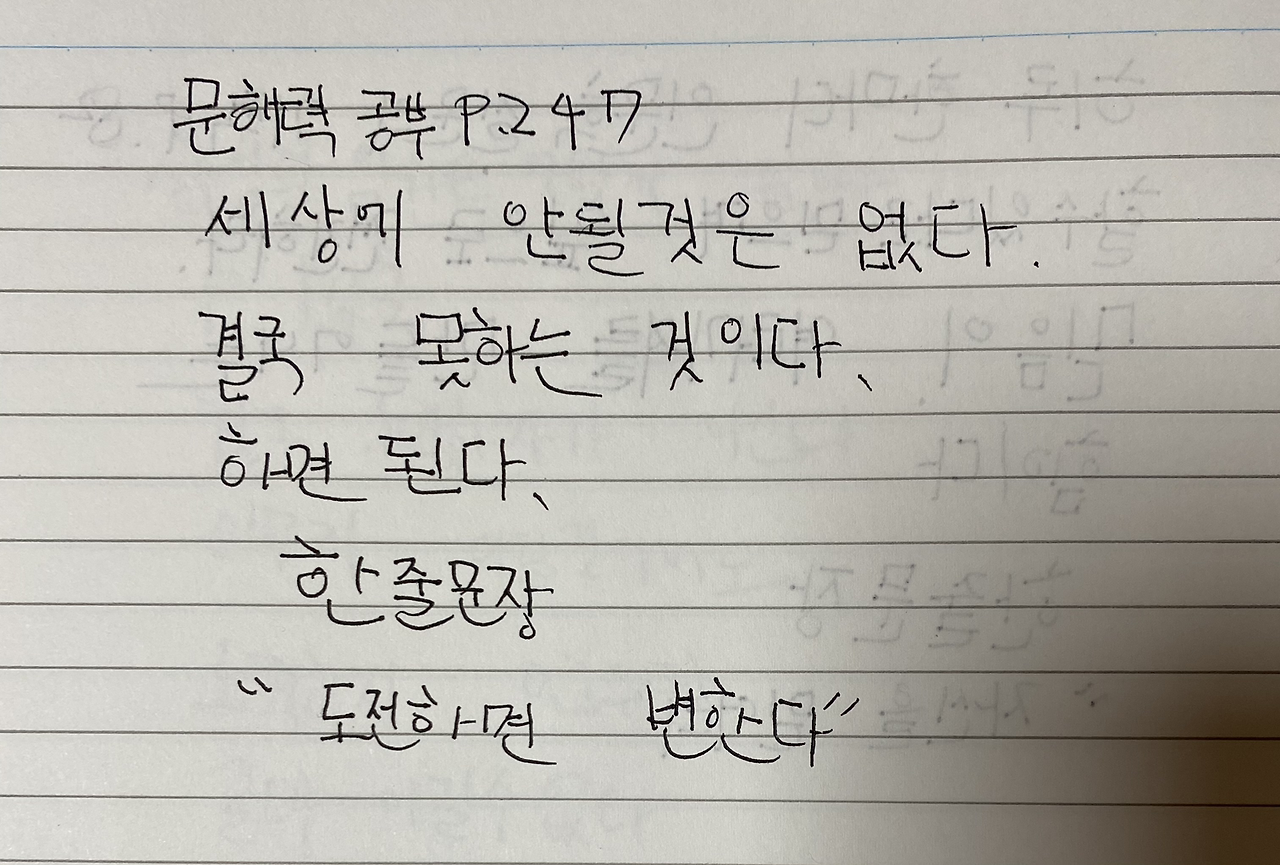 문해력 공부 P.247
세상에 안될것은 없다.
결국 못하는 것이다.
하면 된다.
한줄문장
"도전하면 변한다"